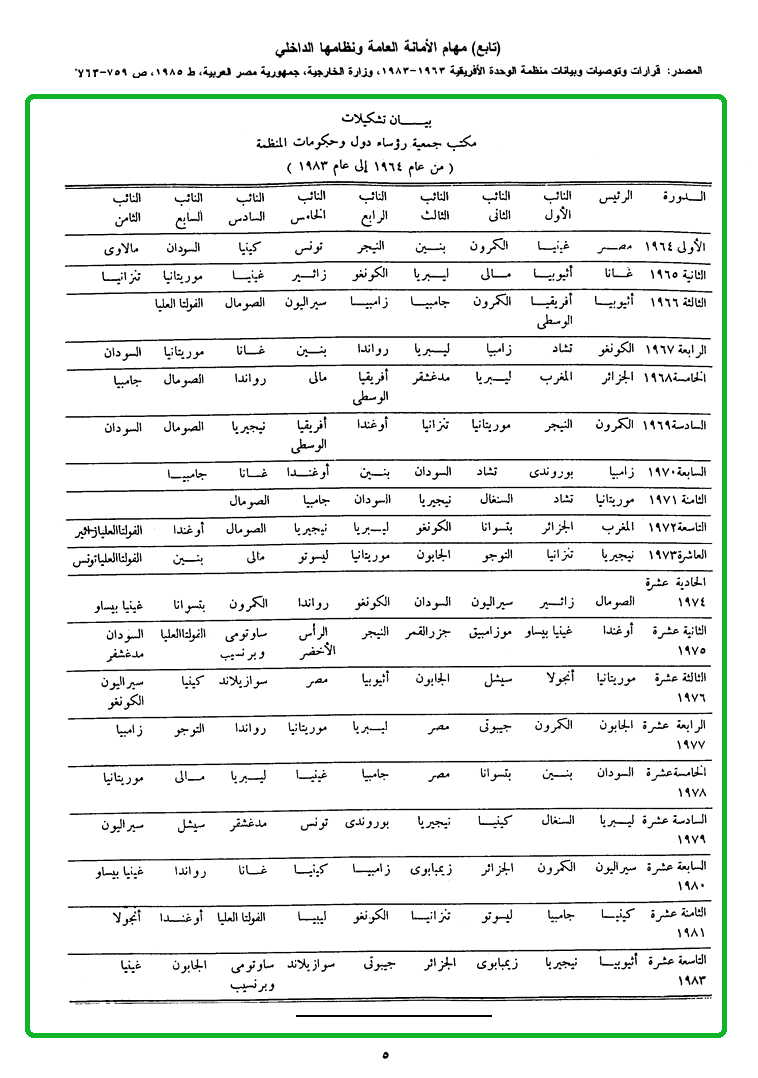 (تابع) مهام الأمانة العامة ونظامها الداخلي
المصدر: قرارات وتوصيات وبيانات منظمة الوحدة الأفريقية ١٩٦٣-١٩٨٣، وزارة الخارجية، جمهورية مصر العربية، ط ١٩٨٥، ص ٧٥٩-٧٦٣"
بيــان تشكيلات
مكتب جمعية رؤساء دول وحكومات المنظمة
( من عام ١٩٦٤ إلى عام ١٩٨٣ )
الــدورة الرئيس النائب النائب النائب النائب النائب النائب النائب النائب
الأول الثانى الثالث الرابع الخامس السادس السابع الثامن
الأولى ١٩٦٤ مصـر غينيـا الكمرون بنـــين النيجر تونس كينيا السودان مالاوى
الثانية ١٩٦٥ غـــانا أثيوبيـا مــالى ليـبريا الكونغو زائــير غينيـــا موريتانيا تنزانيـا
الثالثة ١٩٦٦ أثيوبيـا أفريقيـا الكمرون جامبيــا زامبيــا سيراليون الصومال الفولتا العليا
الوسطى
الرابعة ١٩٦٧ الكونغو تشاد زامبيا ليـبريا رواندا بنــين غــانا موريتانيا السودان
الخامسة ١٩٦٨ الجزائر المغرب ليــبريا مدغشقر أفريقيا مالى رواندا الصومال جامبيا
الوسطى
السادسة ١٩٦٩ الكمرون النيجر موريتانيا تنزانيا أوغندا أفريقيا نيجيريا الصومال السودان
الوسطى
السابعة ١٩٧٠ زامبيا بوروندى تشاد السودان بنــين أوغنــدا غــانا جامبيــا
الثامنة ١٩٧١ موريتانيا تشاد السنغال نيجيريا السودان جامبيا الصومال
التاسعة ١٩٧٢ المغرب الجزائر بتسوانا الكونغو ليــبريا نيجيريا الصومال أوغندا الفولتاالعليازائير
العاشرة ١٩٧٣ نيجيريا تنزانيا التوجو الجابون موريتانيا ليسوتو مالى بنــين الفولتاالعلياتونس
الحادية عشرة
١٩٧٤ الصومال زائــير سيراليون السودان الكونغو رواندا الكمرون بتسوانا غينيا بيساو
الثانية عشرة أوغندا غينيا بيساو موزامبيق جزرالقمر النيجر الرأس ساوتومى الفولتاالعليا السودان
١٩٧٥ الأخضر وبرنسيب مدغشقر
الثالثة عشرة موريتانيا أنجولا سيشل الجابون أثيوبيا مصر سوازيلاند كينيا سيراليون
١٩٧٦ الكونغو
الرابعة عشرة الجابون الكمرون جيبوتى مصر ليــبريا موريتانيا رواندا التوجو زامبيا
١٩٧٧
الخامسةعشرة السودان بنــين بتسوانا مصر جامبيا غينيــا ليــبريا مــالى موريتانيا
١٩٧٨
السادسة عشرة ليــبريا السنغال كينيــا نيجيريا بوروندى تونس مدغشقر سيشل سيراليون
١٩٧٩
السابعة عشرة سيراليون الكمرون الجزائر زيمبابوى زامبيــا كينيــا غــانا رواندا غينيا بيساو
١٩٨٠
الثامنة عشرة كينيــا جامبيا ليسوتو تنزانيــا الكونغو ليبيــا الفولتا العليا أوغنــدا أنجولا
١٩٨١
التاسعة عشرة أثيوبيــا نيجيريا زيمبابوى الجزائر جيبوتى سوازيلاند ساوتومى الجابون غينيا
١٩٨٣ وبرنسيب
٥